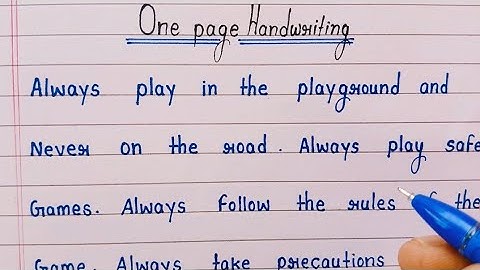 One page Handwriting
Always play in the playground and
Never on the road. Always play safe
Games. Always Follow the rules of the
Game. Always take precautions